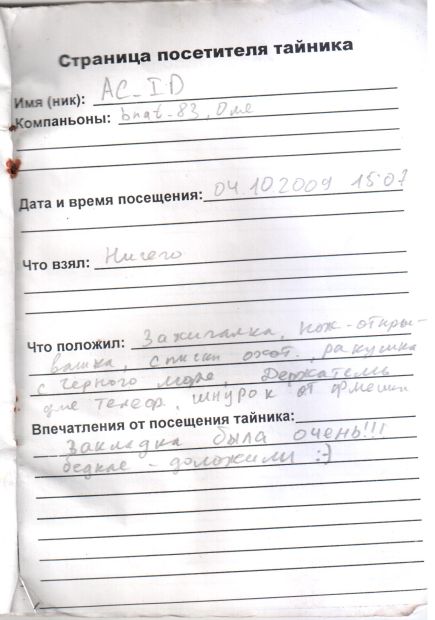 Страница посетителя тайника
Имя (ник): AC_ID
Компаньоны: bnat_83, Оле
Дата и время посещения: 04.10.2009 15:07
Что взял: Ничего
Что положил: Зажигалка, нож-откры-
вашка, спички охот. ракушка
с Черного моря, Держатель
для телеф. шнурок от флешки
Впечатления от посещения тайника:
Закладка была очень!!!
бедная - доложили :-)